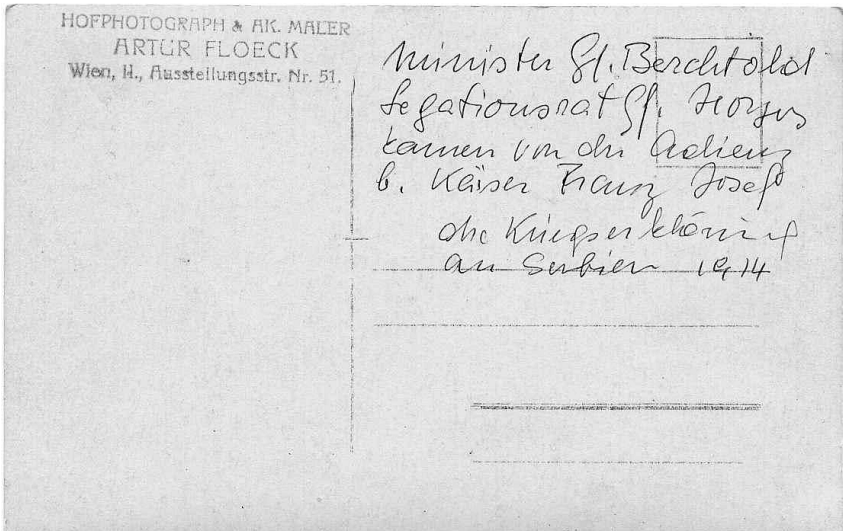 HOFPHOTOGRAPH & AK. MALER
ARTUR FLOECK
Wien, II., Ausstellungsstr. Nr. 51.
Minister Gf. Berchtold
Legationsrat Gf. Hoyos
kamen von der Audienz
b. Kaiser Franz Josef
die Kriegserklärung
an Serbien 1914